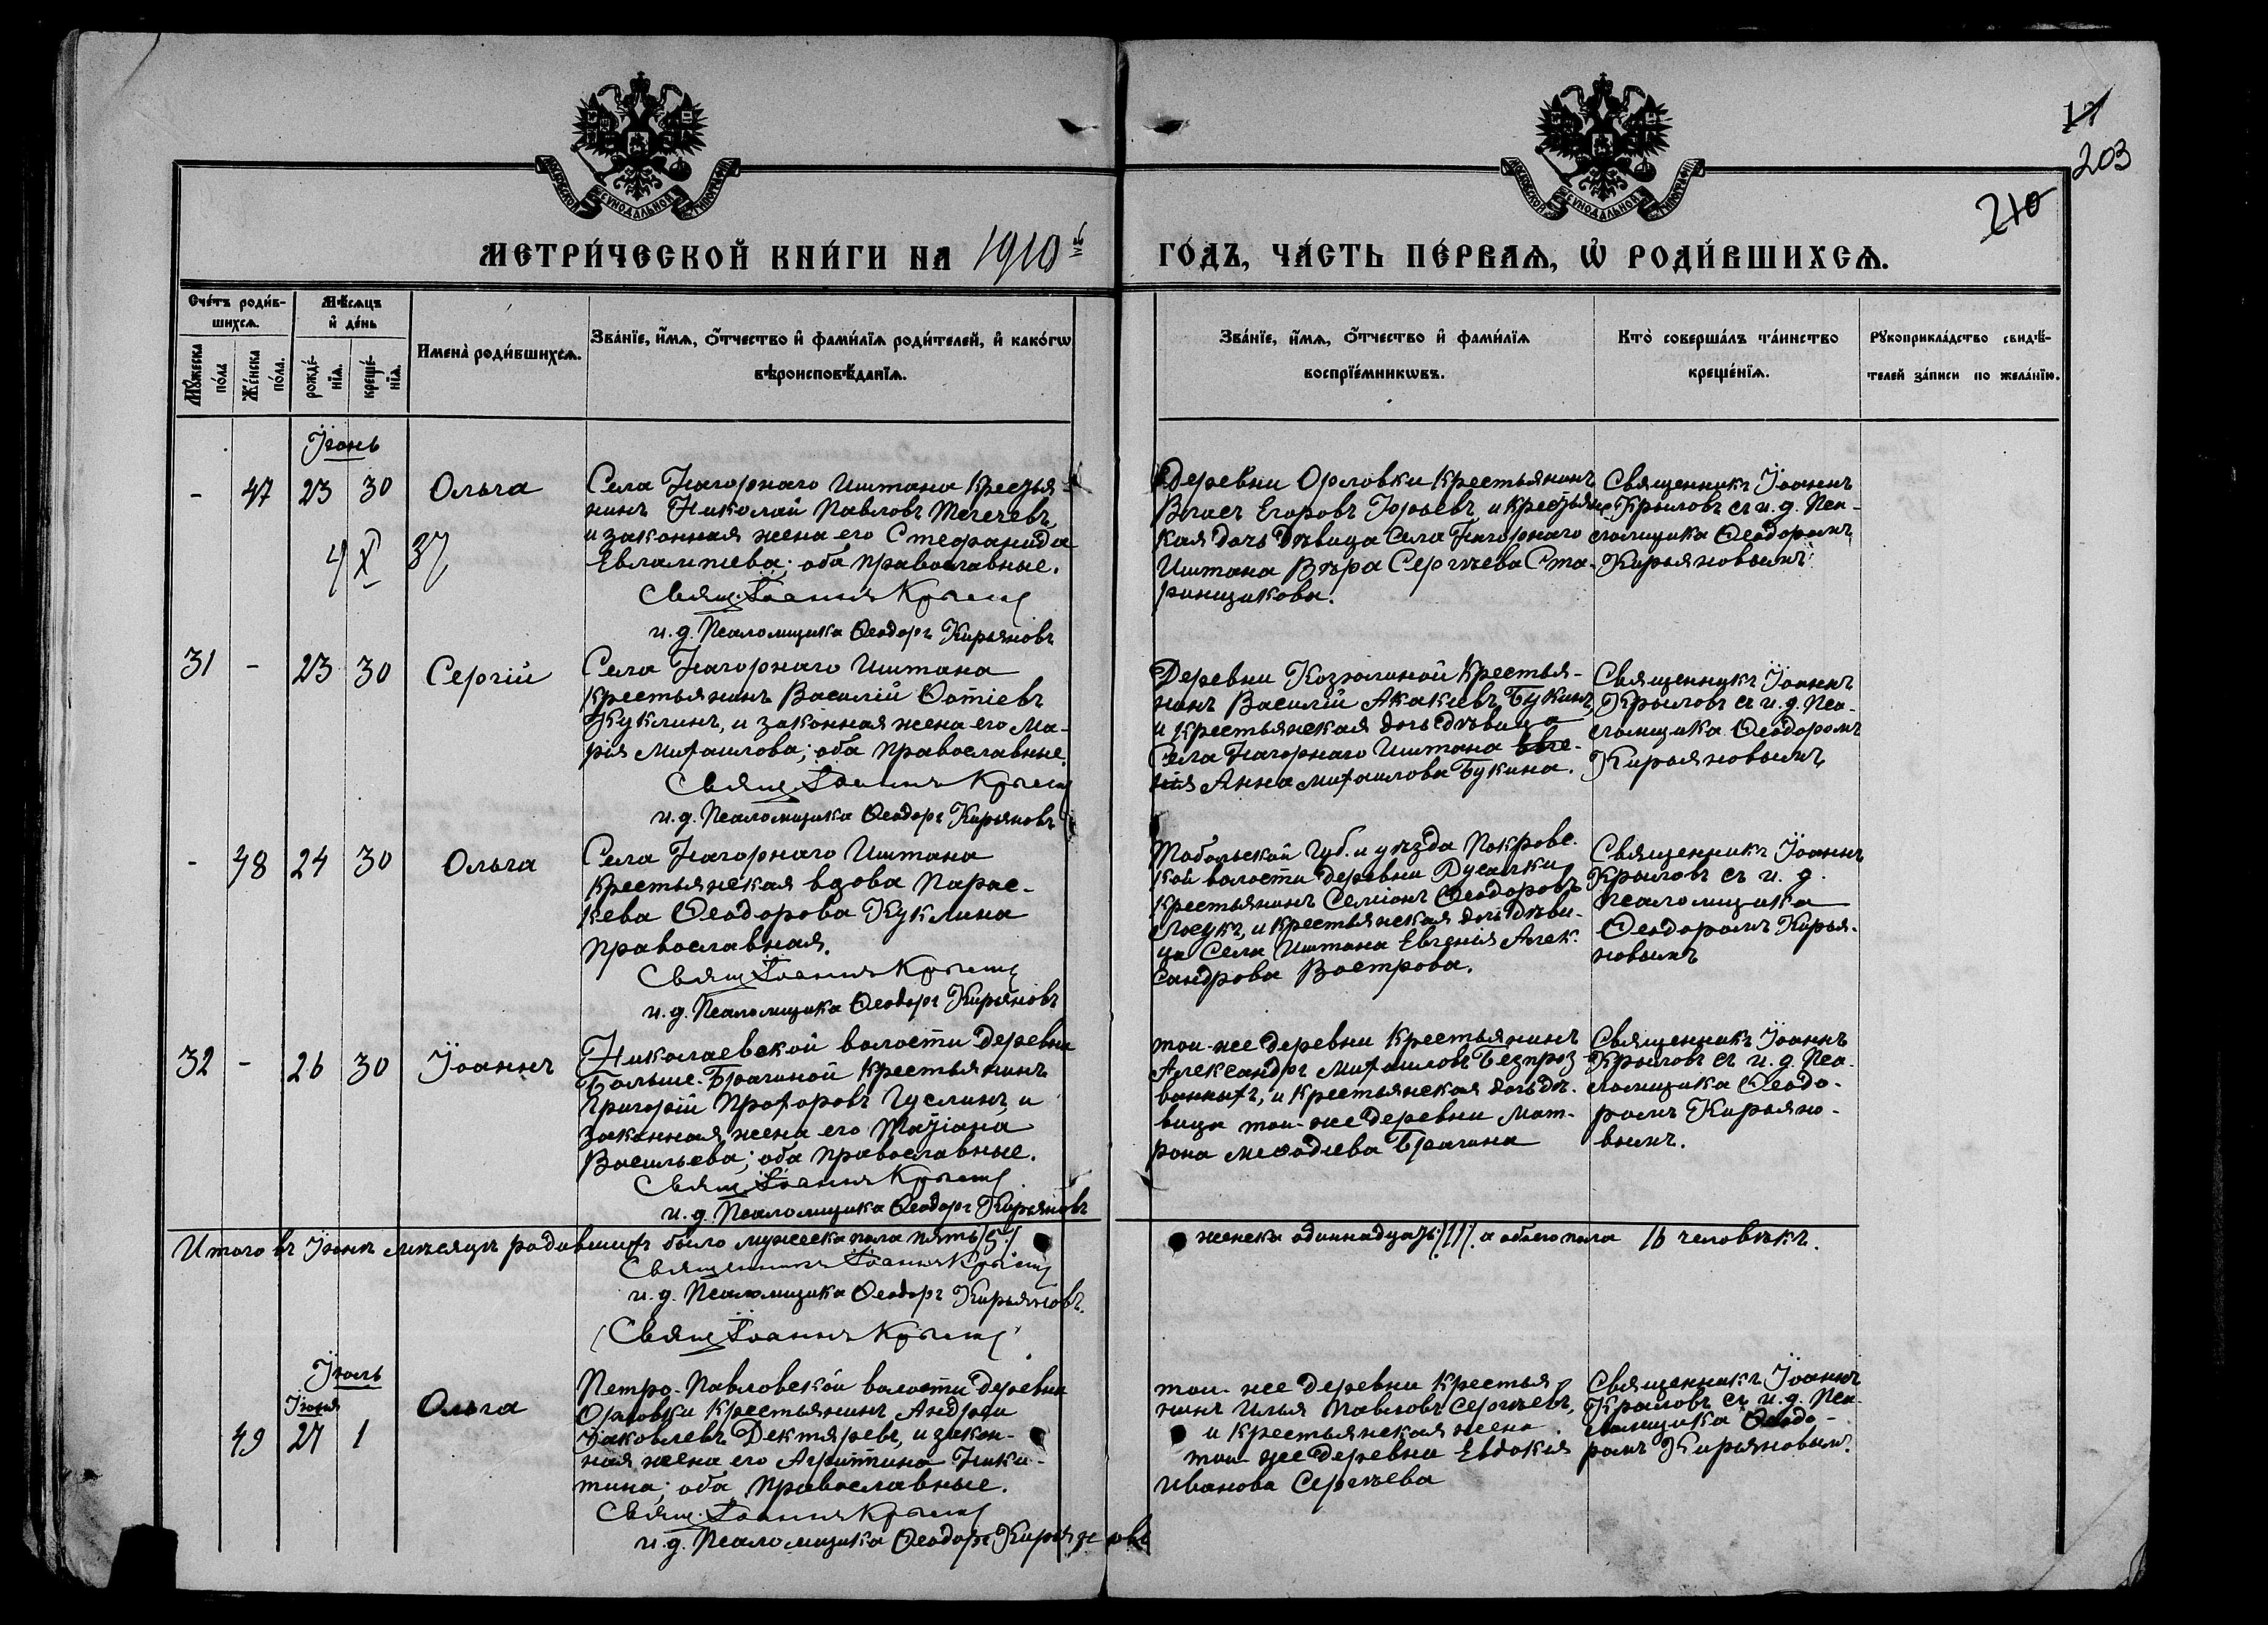 МОСКОВСКОЙ СѴНОДАЛЬНОЙ ТИПОГРАФІИ
МОСКОВСКОЙ СѴНОДАЛЬНОЙ ТИПОГРАФІИ
203
210
МЕТРИ́ЧЕСКОЙ КНИ́ГИ НА 1910й ГО́ДЪ, ЧА́СТЬ ПЕ́РВАЯ, Ѡ҆ РОДИ́ВШИХСЯ.
Сче́тъ роди́в-
шихся.
Мꙋ́жеска по́ла
Же́нска по́ла.
Мѣ́сяцъ
и҆ де́нь
рожде́-
нїя.
креще́-
нїя.
Имена̀ роди́вшихся.
Зва́нїе, и҆́мя, ѻ҆́тчество и҆ фами́лїя роди́телей, и҆ како́гѡ
вѣроисповѣ́данїя.
Зва́нїе, и҆́мя, ѻ҆́тчество и҆ фами́лїя
воспрїе́мникѡвъ.
Кто̀ соверша́лъ та́инство
креще́нїя.
Рꙋкоприкла́дство свидѣ́-
телей за́писи по жела́нїю.
Іюнь
- 47 23 30 Ольга
Села Нагорнаго Иштана Крестья-
нинъ Николай Павловъ
и законная жена его Стефанида
Евлампиева; оба православные.
Свящ. Іоаннъ Крылов
и.д. Псаломщика Ѳеодоръ Кирьяновъ
Деревни Орловки Крестьянинъ
Власъ Егоровъ Юрьевъ, и Крестьянс-
кая дочь дѣвица Села Нагорнаго
Иштана Вѣра Сергѣева Ста-
рищикова.
Священникъ Іоаннъ
Крыловъ съ и.д. Пса-
ломщика Ѳеодоромъ
Кирьяновымъ
4 X 37
31 - 23 30 Сергій
Села Нагорнаго Иштана
Крестьянинъ Василій Фотіевъ
Куклинъ, и законная жена его Ма-
рія Михаилова; оба православные.
Свящ. Іоаннъ Крылов
и.д. Псаломщика Ѳеодоръ Кирьяновъ
Деревни Козюлиной Крестья-
нинъ Василій Акакиевъ Букинъ,
и крестьянская дочь дѣвица
Села Нагорнаго Иштана Евге-
нія Анна Михаилова Букина.
Священникъ Іоаннъ
Крыловъ съ и.д. Пса-
ломщика Ѳеодоромъ
Кирьяновымъ
- 48 24 30 Ольга
Села Нагорнаго Иштана
Крестьянская вдова Парас-
кева Ѳеодорова Куклина
православная.
Свящ Іоаннъ Крылов
и.д. Псаломщика Ѳеодоръ Кирьяновъ
Тобольской Губ. и уѣзда Покровс-
кой волости деревни
крестьянинъ Семіонъ Ѳеодоровъ
и крестьянская дочь дѣви-
ца Села Иштана Евгенія Алек-
сандрова Вострова.
Священникъ Іоаннъ
Крыловъ съ и. д.
псаломщика
Ѳеодоромъ Кирья-
новымъ
32 - 26 30 Іоаннъ
Николаевской волости деревни
Больше-Брагиной Крестьянинъ
Григорій Прохоровъ Гуслинъ, и
законная жена его Татіана
Васильева; оба православные.
Свящ. Іоаннъ Крылов
и.д. Псаломщика Ѳеодоръ Кирьяновъ
той-же деревни Крестьянинъ
Александръ Михаиловъ Безпроз-
ванныхъ, и крестьянская дочь дѣ-
вица той-же деревни Мат-
рона Меѳодиева Брагина
Священникъ Іоаннъ
Крыловъ съ и.д. Пса-
ломщика Ѳеодо-
ромъ Кирьяно-
вымъ.
Итого въ Іюнѣ мѣсяцѣ родившихъ было мужеска пола пять /5/ женска одиннадцать /11/ а обоего пола 16 человѣкъ.
Священникъ Іоаннъ Крылов
и.д. Псаломщика Ѳеодоръ Кирьяновъ.
Свящ Іоаннъ Крылов
Іюль
Іюня
49 27 1 Ольга
Петро-Павловской волости деревни
Орловки Крестьянинъ Андрей
Іаковлевъ Дектяревъ, и закон-
ная жена его Агриппина Ники-
тина; оба православные.
Свящ. Іоаннъ Крылов
и.д. Псаломщика Ѳеодоръ Кирьяновъ
той-же деревни Крестья-
нинъ Илья Павловъ Сергѣевъ,
и Крестьянская жена
той-же деревни Евдокия
Иванова Сергѣева
Священникъ Іоаннъ
Крыловъ съ и.д. Пса-
ломщика Ѳеодо-
ромъ Кирьяновым.